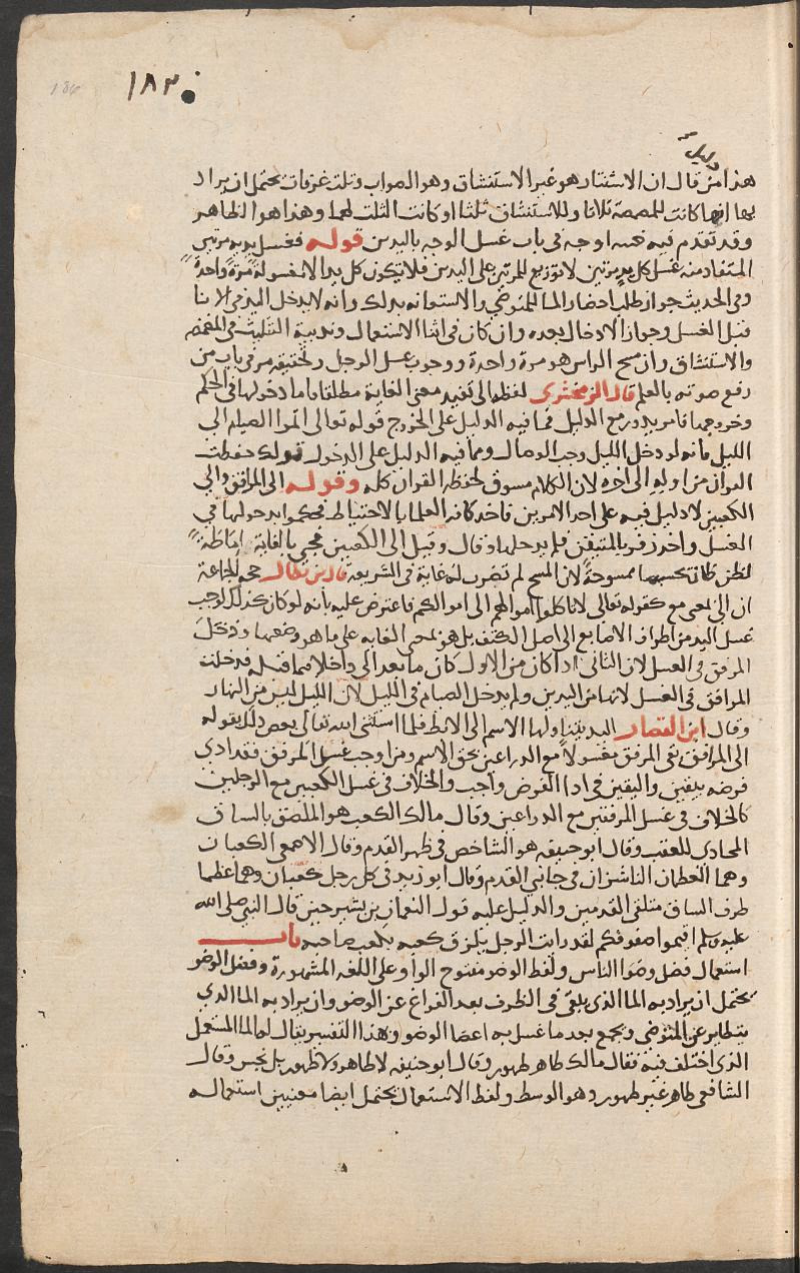 ١٨٣
184
دليل
هذا من قال ان الاستنثار هو غير الاستنشاق وهو الصواب وثلث غرفات يحتمل ان يراد
بها انها كانت للمضمضة ثلاثا وللاستنشاق ثلثا او كانت الثلث لهما وهذا هو الظاهر
وقد تقدم فيه خمسه اوجه في باب غسل الوجه باليدين قوله فغسل يديه مرتين
المتفاد منه غسل كل يد مرتين لا توزيع المرتين على اليدين فلا يكون كل يد الا مغسولة مرة واحدة
وفي الحديث جواز طلب احضار الما للمتوضي والاستعانه بذلك وانه لا يدخل اليد في الانا
قبل الغسل وجواز الادخال بعده وان كان في اثنا الاستعمال وندبية التثليث في المضمضه
والاستنشاق وان مسح الراس هو مرة واحدة ووجوب غسل الرجل وتحقيقه مر في باب من
رفع صوته بالعلم قال الزمخشري لفظه الى تفيد معنى الغاية مطلقا فاما دخولها في الحكم
وخروجها فامر يدور مع الدليل فما فيه الدليل على الخروج قوله تعالى اتموا الصيام الى
الليل فانه لو دخل الليل وجب الوصال ومما فيه الدليل على الدخول قولك حفظت
القران من اوله الى اخره لان الكلام مسوق لحفظ القران كله وقوله الى المرافق والى
الكعبين لا دليل فيه على احد الامرين فاخذ كافه العلما بالاحتياط فحكموا بدخولها في
الغسل واخذ زفر بالمتيقن فلم يدخلها وقال وقيل الى الكعبين فجي بالغاية اماطة
لظن ظان يحسبها ممسوحة لان المسح لم تضرب له غاية في الشريعه قال ابن بطال حجه الجماعة
ان الى بمعنى مع كقوله تعالى لا تاكلوا اموالهم الى اموالكم فاعترض عليه بانه لو كان كذلك لوجب
غسل اليد من اطراف الاصابع الى اصل الكتف بل هو بمعنى الغايه على ما هو وضعها ودخل
المرفق في الغسل لان الثاني اذا كان من الاول كان ما بعد الى داخلا فيما قبله فدخلت
المرافق في الغسل لانها من اليدين ولم يدخل الصيام في الليل لان الليل ليس من النهار
وقال ابن القصار اليد يتناولها الاسم الى الابط فلما استثنى الله تعالى بعض ذلك بقوله
الى المرافق بقى المرفق مغسولا مع الذراعين بحق الاسم ومن اوجب غسل المرفق فقد ادى
فرضه بيقين واليقين في ادا الفرض واجب والخلاف في غسل الكعبين مع الرجلين
كالخلاف في غسل المرفقين مع الذراعين وقال مالك الكعب هو الملصق بالساق
المحاذي للعقب وقال ابو حنيفه هو الشاخص في ظهر القدم وقال الاصمعي الكعبان
وهما العظمان الناشزان في جانبي القدم وقال ابو زيد في كل رجل كعبان وهما عظما
طرف الساق ملتقى القدمين والدليل عليه قول النعمان بن بشير حين قال النبي صلى الله
عليه وسلم اقيموا صفوفكم لقد رايت الرجل يلزق كعبه بكعب صاحبه باب
استعمال فضل وضوا الناس ولفظ الوضو مفتوح الواو على اللغه المشهورة وفضل الوضو
يحتمل ان يراد به الما الذي يبقى في الظرف بعد الفراغ عن الوضو وان يراد به الما الذي
يتطاير عن المتوضي ويجمع بعد ما غسل به اعضا الوضو وهذا التفسير يقال له الما المستعمل
الذي اختلف فيه فقال مالك طاهر طهور وقال ابو حنيفه لا طاهر ولا طهور بل نجس وقال
الشافعي طاهر غير طهور وهو الوسط ولفظ الاستعمال يحتمل ايضا معنيين استعماله